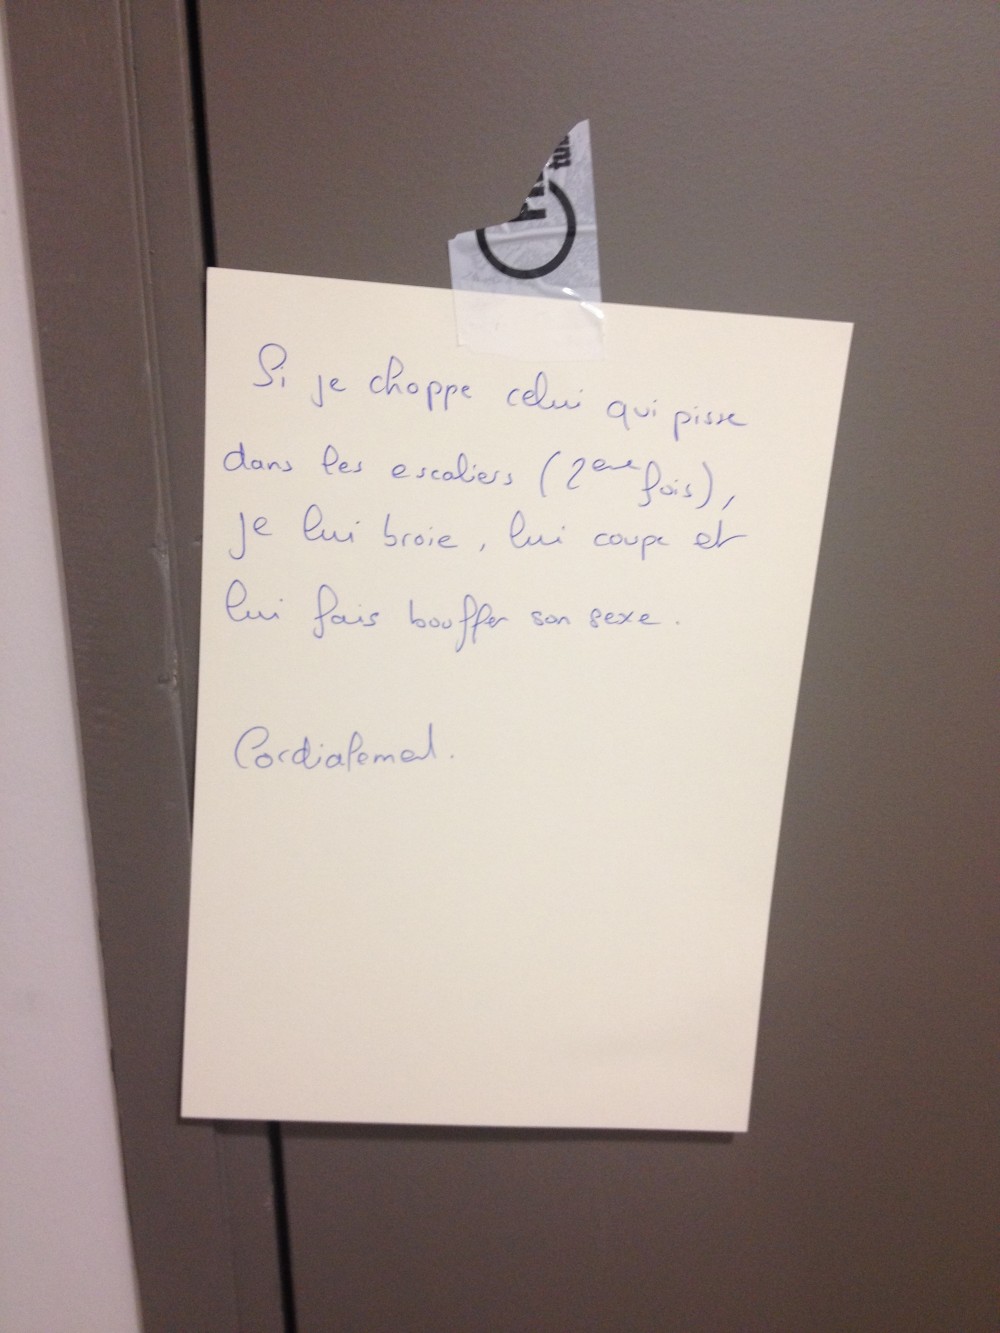 Si je choppe celui qui pisse
dans les escaliers (2eme fois),
je lui broie, lui coupe et
lui fais bouffer son sexe.
Cordialement.